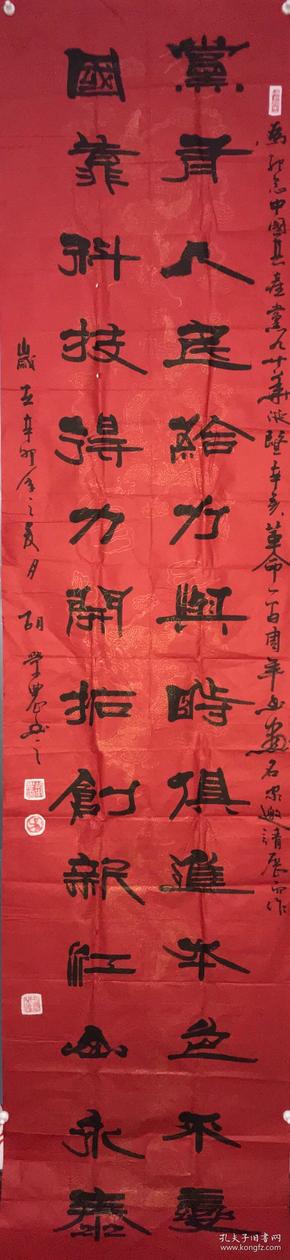 為紀念中國共產黨九十華誕暨辛亥革命一百周年書畫名家邀請展而作
黨有人民給力與時俱進本色不變
國靠科技得力開拓創新江山永泰
歲在辛卯年之夏月胡學農書之
孔夫子旧书网